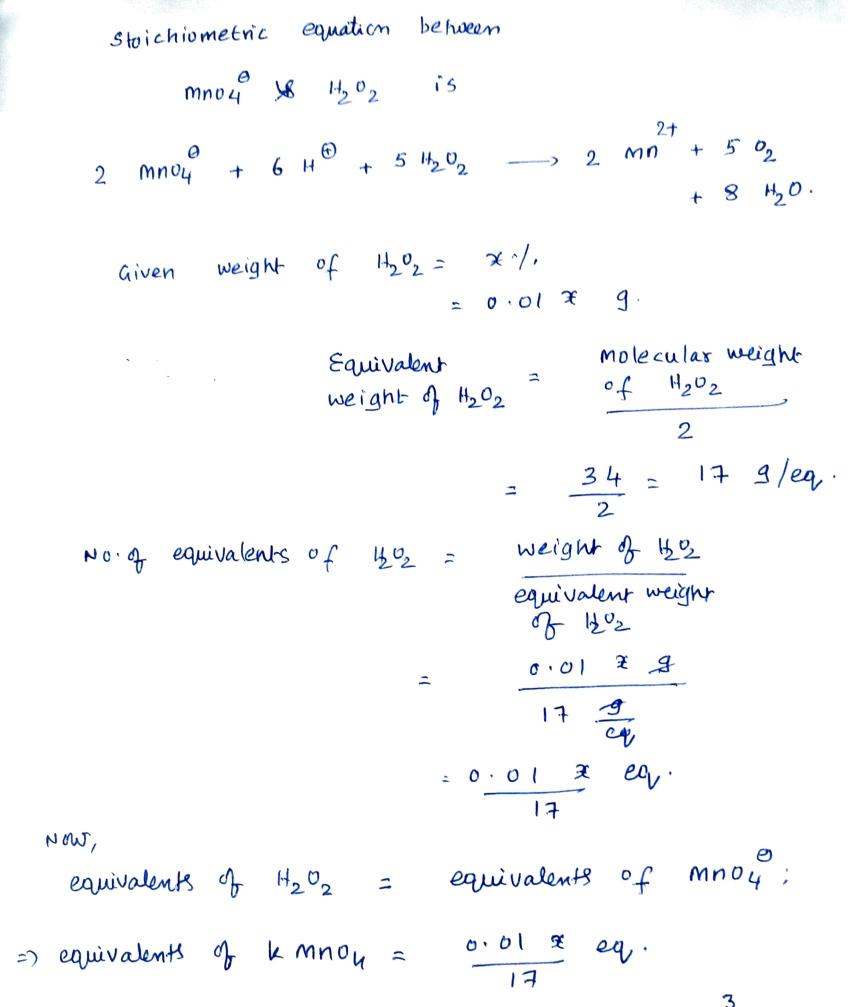 Stoichiometric equation between
MnO4⊖ & H2O2 is
2 MnO4⊖ + 6 H⊕ + 5 H2O2 ⟶ 2 Mn2+ + 5 O2
+ 8 H2O.
Given weight of H2O2 = x %
= 0.01 x g.
Equivalent weight of H2O2 = molecular weight of H2O2 / 2
= 34 / 2 = 17 g/eq.
No. of equivalents of H2O2 = weight of H2O2 / equivalent weight of H2O2
= 0.01 x g / 17 g/eq
= 0.01 x / 17 eq.
NOW,
equivalents of H2O2 = equivalents of MnO4⊖;
=> equivalents of KMnO4 = 0.01 x / 17 eq.
3